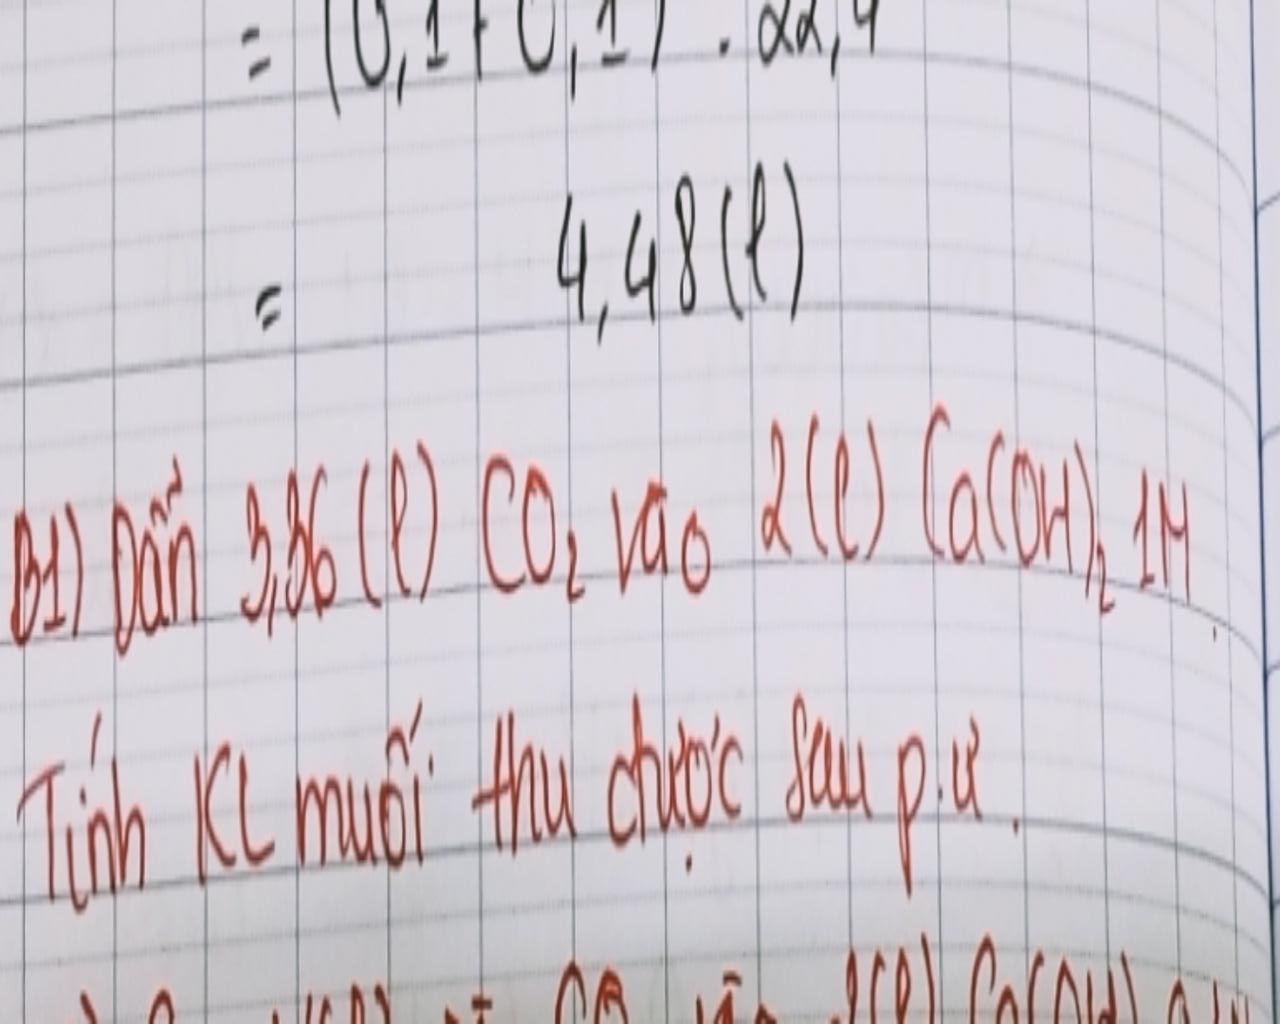 = (0,1+0,1) . 22,4
= 4,48(l)
B1) Dẫn 3,36(l) CO₂ vào 2(l) Ca(OH)₂ 1M.
Tính KL muối thu được sau p.ư.